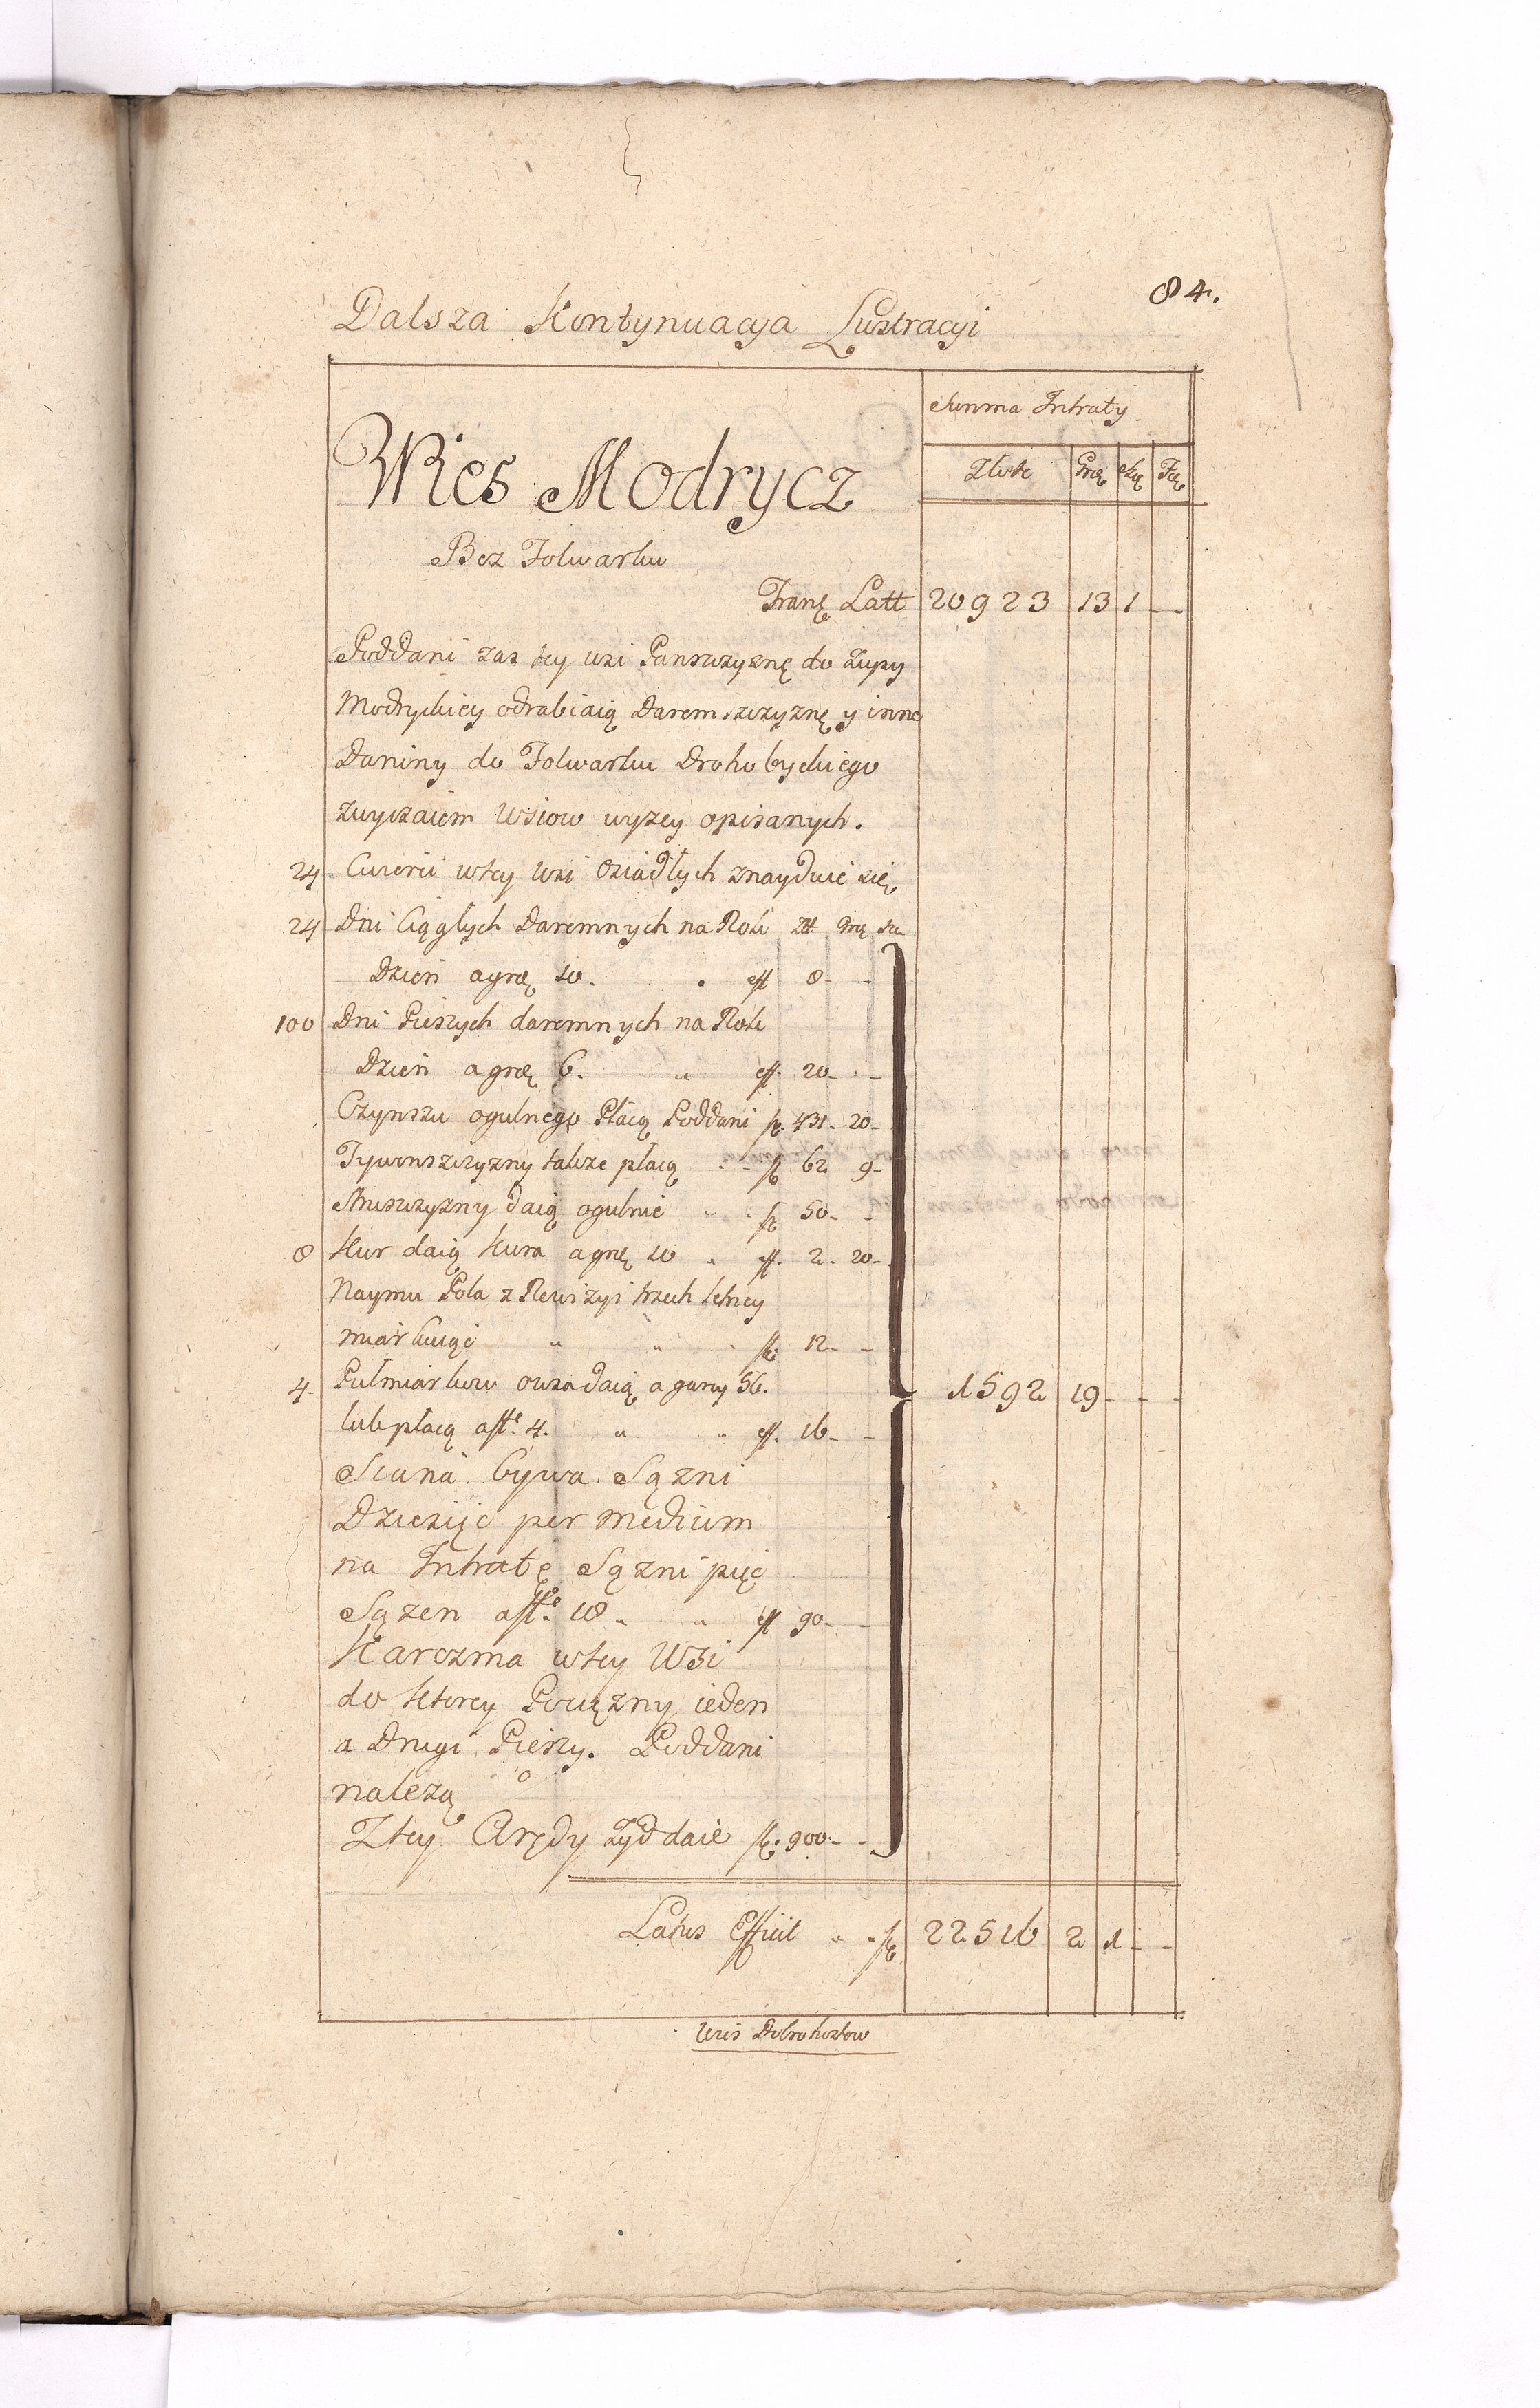 84.
Dalsza Kontynuacya Lustracyi
Summa Intraty
Wies Modrycz
Złote Grꝫ Szę Frę
Bez Folwarku
Tranſ Latt 20923 13 1 — —
Poddani zas tey wsi Panszczyznę do Zupy
Modryckiey odrabiaią Daremszczyznę y inne
Daniny do Folwarku Drohobyckiego
zwyczaiem Wsiow wyzey opisanych.
24 Cwierci w tey wsi Osiadłych znayduie się
24 Dni Ciągłych Daremnych na Rok Zł Grę Sz
Dzień a grę 10. . eff 8 - -
100 Dni Pieszych daremnych na Rok
Dzień a grę 6. " eff. 20 - -
Czynszu ogulnego Płacą Poddani fl. 431 - 20 -
Tywunszczyzny także płacą . . fl 62 9 -
Struszczyzny daią ogulnie " . fl 50 - -
8 Kur daią Kura a grę 10 " eff. 2 - 20 -
Naymu Pola z Rewizyi trzech letney
miarkuiąc " " . fl. 12 - -
4. Pulmiarkow owsa daią a garcy 56. 1592 19 - - -
lub płacą a fle. 4. " " eff. 16 - -
Siana bywa Sązni
Dziesięc per medium
na Intratę Sązni pięc
Sązen a fle. 18 " " eff 90 - -
Karczma w tey Wsi
do ktorey Pociężny ieden
a Drugi Pieszy. Poddani
nalezą
Z tey Arędy Zyd daie fl: 900 - -
Latus Efficit . . fl 22516 2 1 - -
Wies Dobrohostow